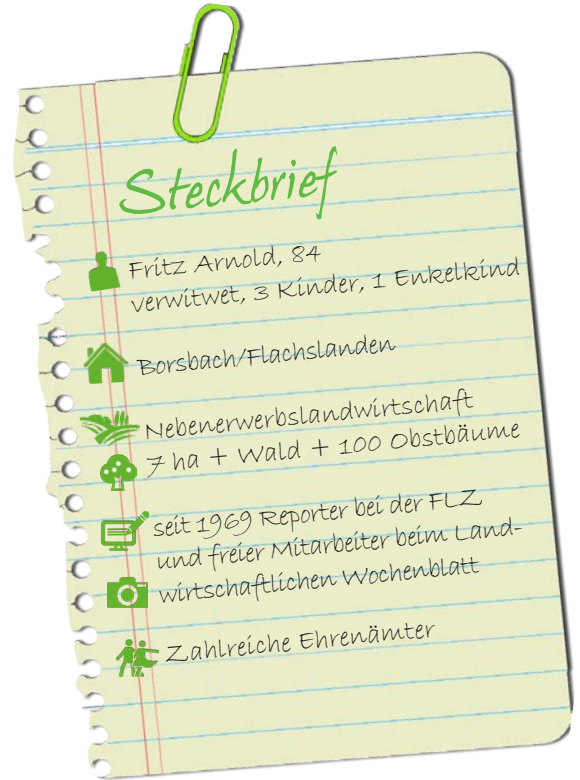 Steckbrief
Fritz Arnold, 84
verwitwet, 3 Kinder, 1 Enkelkind
Borsbach/Flachslanden
Nebenerwerbslandwirtschaft
7 ha + Wald + 100 Obstbäume
seit 1969 Reporter bei der FLZ
und freier Mitarbeiter beim Land-
wirtschaftlichen Wochenblatt
Zahlreiche Ehrenämter